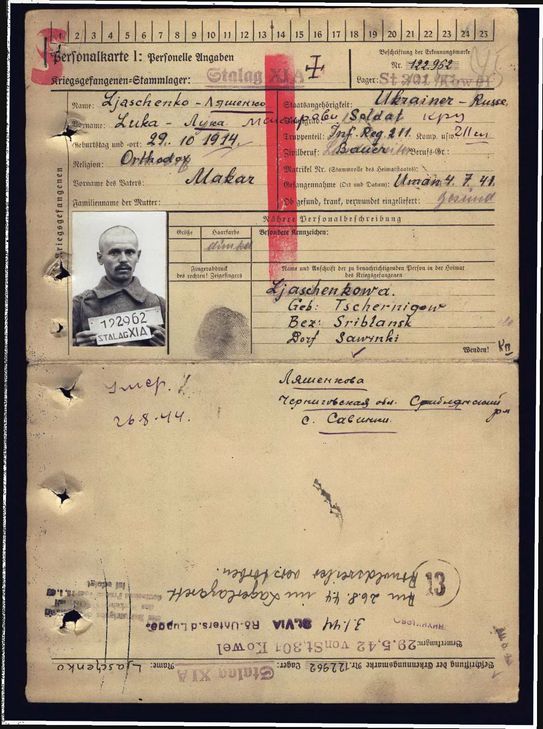 1 2 3 4 5 6 7 8 9 10 11 12 13 14 15 16 17 18 19 20 21 22 23
Personalkarte I: Personelle Angaben
Kriegsgefangenen-Stammlager: Stalag XI A
Beschriftung der Erkennungsmarke
Nr. 122962
Lager: St 301 Kowel
Kriegsgefangenen
Name: Ljaschenko - Ляшенко
Vorname: Luka - Лука
Geburtstag und -ort: 29. 10 1914.
Religion: Orthodox
Vorname des Vaters: Makar
Familienname der Mutter:
Staatsangehörigkeit: Ukrainer - Russe
Soldat
Truppenteil: Inf. Reg 211 Komp. usw.:
Zivilberuf: Bauer Berufs-Gr.:
Matrikel Nr. (Stammrolle des Heimatstaates):
Gefangennahme (Ort und Datum): Uman 4. 7. 41.
Ob gesund, krank, verwundet eingeliefert: gesund
Nähere Personalbeschreibung
Größe Haarfarbe Besondere Kennzeichen:
dunkel
Fingerabdruck
des rechten! Zeigefingers
Name und Anschrift der zu benachrichtigenden Person in der Heimat
des Kriegsgefangenen
Ljaschenkowa.
Geb: Tschernigow
Bez: Sriblansk
Dorf Sawinki
Wenden!
122962
STALAG XI A
Умер.
26.8.44.
Ляшенкова
Черниговская обл. Сриблянский
р-н
с. Савинки.
13
Am 26.8 44 im Lagerlazarett
verstorben.
3.1.44 St. VI A
Bemerkungen: 29.5.42 von St. 301 Kowel
Beschriftung der Erkennungsmarke Nr. 122962 Lager: Stalag XI A
Name: Ljaschenko